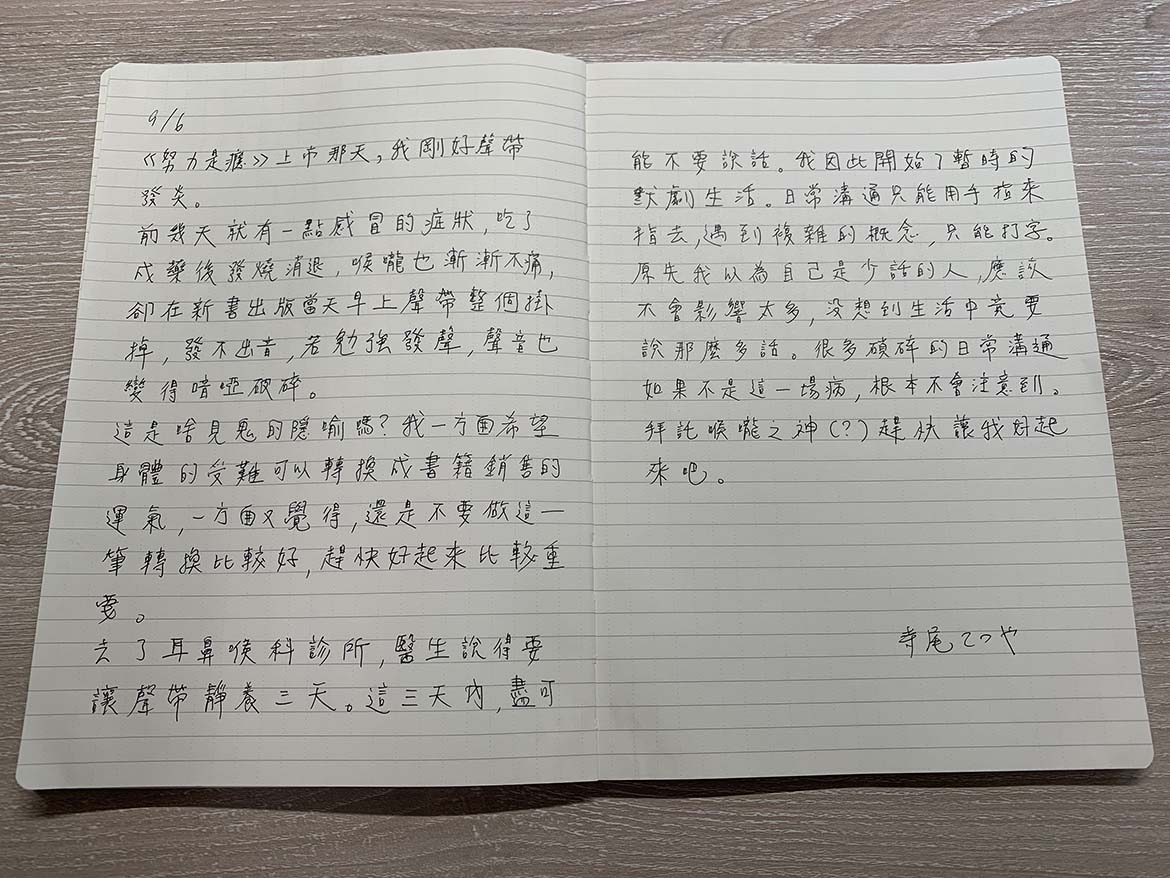 9/6
《努力是癮》上市那天，我剛好聲帶
發炎。
前幾天就有一點感冒的症狀，吃了
成藥後發燒消退，喉嚨也漸漸不痛，
卻在新書出版當天早上聲帶整個掛
掉，發不出音，若勉強發聲，聲音也
變得喑啞破碎。
這是啥見鬼的隱喻嗎？我一方面希望
身體的受難可以轉換成書籍銷售的
運氣，一方面又覺得，還是不要做這一
筆轉換比較好，趕快好起來比較重
要。
去了耳鼻喉科診所，醫生說得要
讓聲帶靜養三天。這三天內，盡可
能不要說話。我因此開始了暫時的
默劇生活。日常溝通只能用手指來
指去，遇到複雜的概念，只能打字。
原先我以為自己是少話的人，應該
不會影響太多，沒想到生活中竟要
說那麼多話。很多瑣碎的日常溝通
如果不是這一場病，根本不會注意到。
拜託喉嚨之神（？）趕快讓我好起
來吧。
寺尾てつや